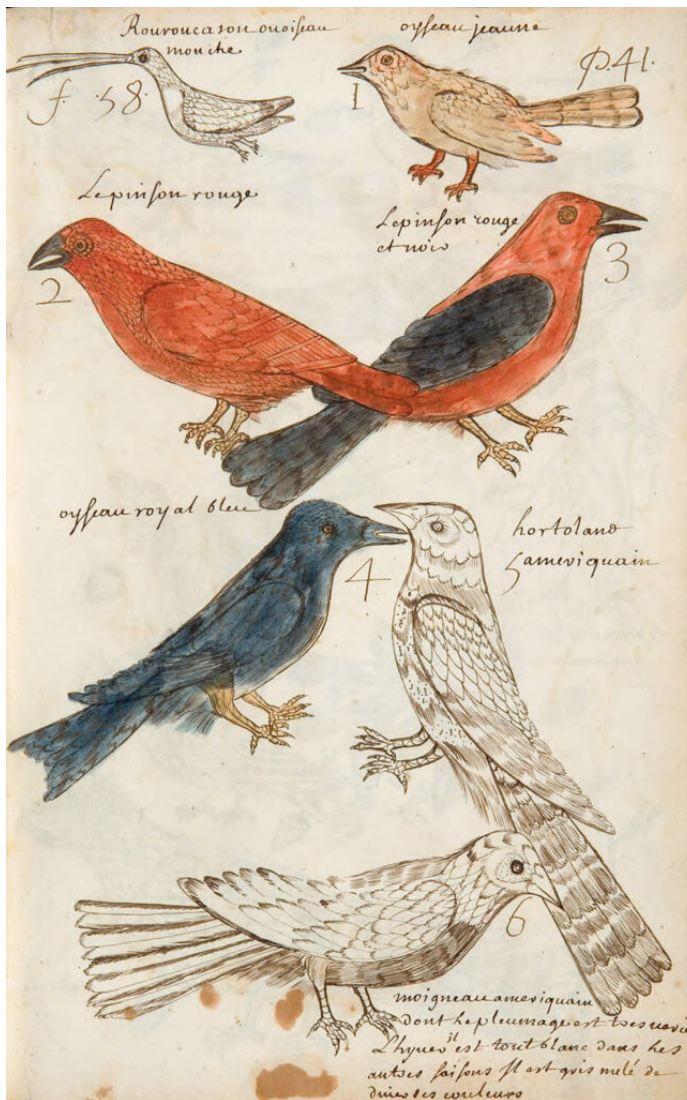 Rouroucason ou oiseau
mouche
f. 58.
oysseau jeaune
1
P. 41.
Le pinson rouge
2
Le pinson rouge
et noir
3
oysseau royal bleu
4
hortolans
5 ameriquain
6
moigneau ameriquain
dont le pleumage est tres
L'hyuer il est tout blanc dans les
autres saisons Il est gris melé de
diuerses couleurs